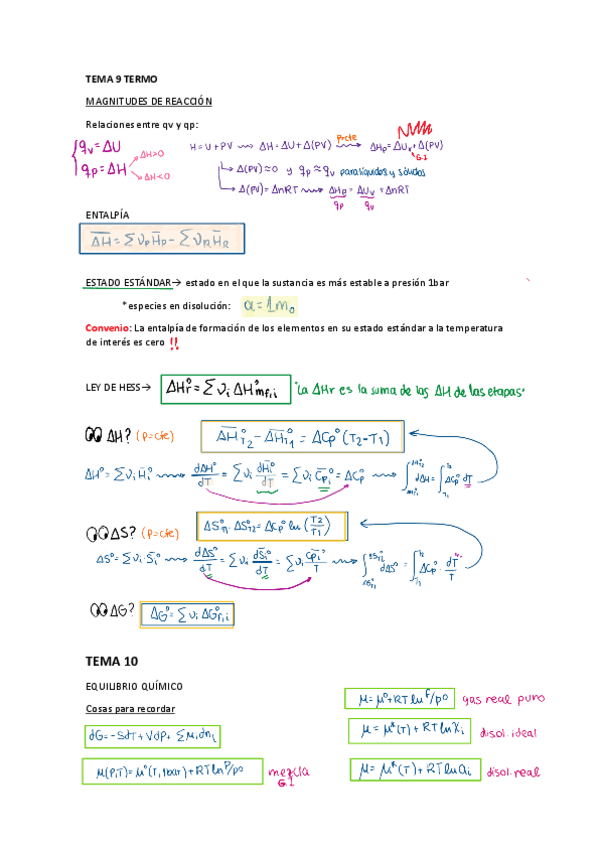 TEMA 9 TERMO
MAGNITUDES DE REACCIÓN
Relaciones entre qv y qp:
qv = ΔU
qp = ΔH → ΔH>0
→ ΔH<0
H = U + PV ⟿ ΔH = ΔU + Δ(PV) P=cte ⟿ ΔHp = ΔUv + Δ(PV)
G.I
↳ Δ(PV) ≈ 0 y qp ≈ qv para líquidos y sólidos
↳ Δ(PV) = ΔnRT ⟿ ΔHp = ΔUv = ΔnRT
qp qv
ENTALPÍA
ΔH = Σ νp Hp - Σ νR HR
ESTADO ESTÁNDAR→ estado en el que la sustancia es más estable a presión 1bar
*especies en disolución: a = 1 m₀
Convenio: La entalpía de formación de los elementos en su estado estándar a la temperatura
de interés es cero !!
LEY DE HESS→ ΔHr° = Σ νi ΔH°mf,i "La ΔHr es la suma de las ΔH de las etapas"
ΔH? (P=cte) ΔH°T2 - ΔH°T1 = ΔCp° (T2-T1)
ΔH° = Σ νi Hi° ⟿ dΔH°/dT = Σ νi dHi°/dT = Σ νi Cpi° = ΔCp° ⟿ ∫ dΔH = ∫ ΔCp° dT
ΔS? (P=cte) ΔS°T1 - ΔS°T2 = ΔCp° ln (T2/T1)
ΔS° = Σ νi · Si° ⟿ dΔS°/dT = Σ νi dSi°/dT = Σ νi Cpi°/T ⟿ ∫ dΔS° = ∫ ΔCp° · dT/T
ΔG? ΔG° = Σ νi ΔG°f,i
TEMA 10
EQUILIBRIO QUÍMICO
Cosas para recordar
μ = μ° + RT ln f/p° gas real puro
dG = -SdT + VdP + Σ μi dni
μ = μ*(T) + RT ln Xi disol. ideal
μ(P,T) = μ°(T, 1bar) + RT ln P/p° mezcla G.I
μ = μ*(T) + RT ln ai disol. real